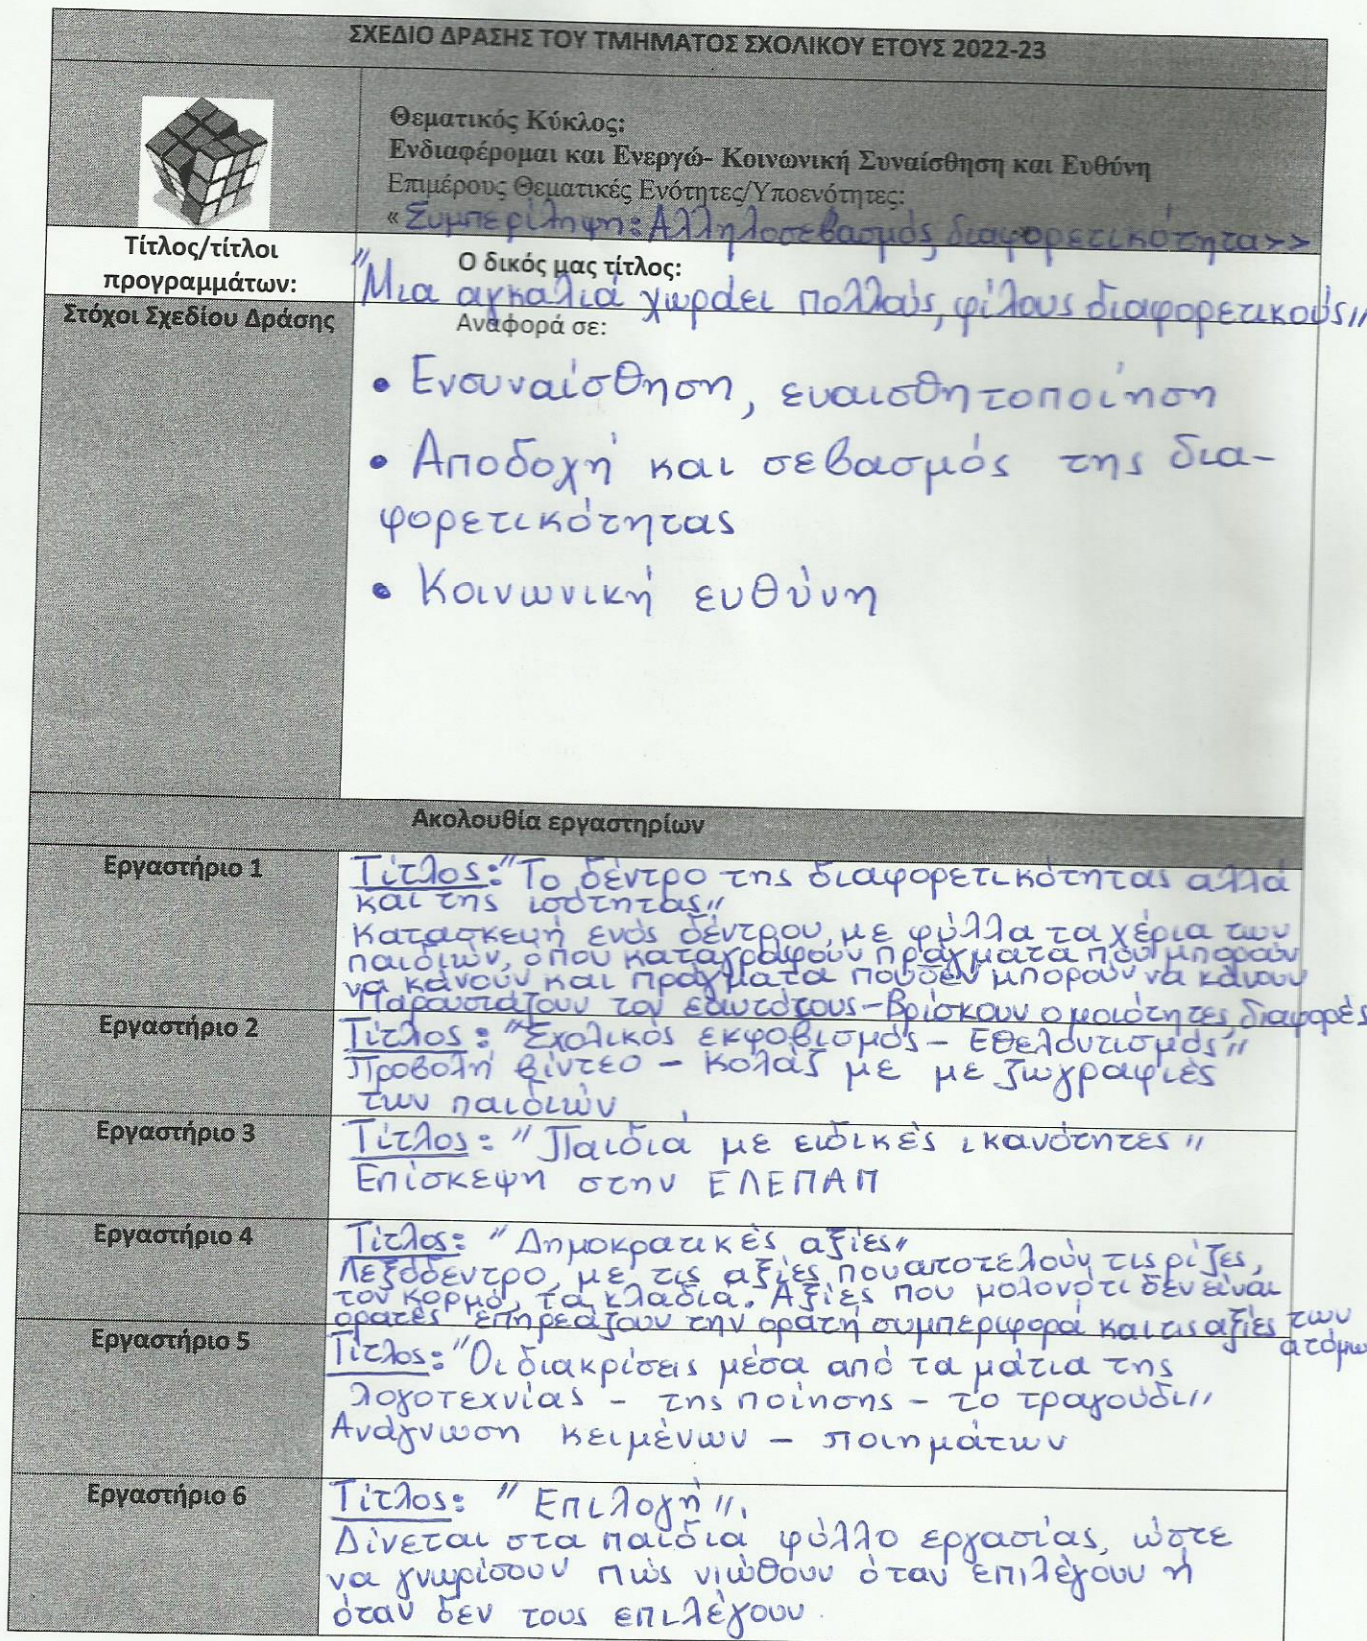 ΣΧΕΔΙΟ ΔΡΑΣΗΣ ΤΟΥ ΤΜΗΜΑΤΟΣ ΣΧΟΛΙΚΟΥ ΕΤΟΥΣ 2022-23
Θεματικός Κύκλος:
Ενδιαφέρομαι και Ενεργώ- Κοινωνική Συναίσθηση και Ευθύνη
Επιμέρους Θεματικές Ενότητες/Υποενότητες:
« Συμπερίληψη: Αλληλοσεβασμός διαφορετικότητα>>
Τίτλος/τίτλοι
προγραμμάτων:
Ο δικός μας τίτλος:
"Μια αγκαλιά χωράει πολλούς, φίλους διαφορετικούς"
Στόχοι Σχεδίου Δράσης
Αναφορά σε:
• Ενσυναίσθηση, ευαισθητοποίηση
• Αποδοχή και σεβασμός της δια-
φορετικότητας
• Κοινωνική ευθύνη
Ακολουθία εργαστηρίων
Εργαστήριο 1
Τίτλος: "Το δέντρο της διαφορετικότητας αλλά
και της ισότητας"
Κατασκευή ενός δέντρου, με φύλλα τα χέρια των
παιδιών, όπου καταγράφουν πράγματα που μπορούν
να κάνουν και πράγματα που δεν μπορούν να κάνουν
Παρουσιάζουν τον εαυτό τους - Βρίσκουν ομοιότητες, διαφορές
Εργαστήριο 2
Τίτλος: "Σχολικός εκφοβισμός - Εθελοντισμός"
Προβολή βίντεο - Κολάζ με με ζωγραφιές
των παιδιών
Εργαστήριο 3
Τίτλος: "Παιδιά με ειδικές ικανότητες"
Επίσκεψη στην ΕΛΕΠΑΠ
Εργαστήριο 4
Τίτλος: "Δημοκρατικές αξίες"
Λεξόδεντρο, με τις αξίες που αποτελούν τις ρίζες,
τον κορμό, τα κλαδιά. Αξίες που μολονότι δεν είναι
ορατές επηρεάζουν την ορατή συμπεριφορά και τις αξίες των
ατόμω
Εργαστήριο 5
Τίτλος: "Οι διακρίσεις μέσα από τα μάτια της
λογοτεχνίας - της ποίησης - το τραγούδι"
Ανάγνωση κειμένων - ποιημάτων
Εργαστήριο 6
Τίτλος: "Επιλογή".
Δίνεται στα παιδιά φύλλο εργασίας, ώστε
να γνωρίσουν πώς νιώθουν όταν επιλέγουν ή
όταν δεν τους επιλέγουν.